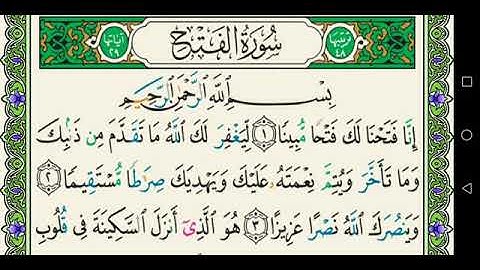 ترتيبها ٤٨
سُورَةُ الْفَتْحِ
آياتها ٢٩
بِسْمِ اللَّهِ الرَّحْمَٰنِ الرَّحِيمِ
إِنَّا فَتَحْنَا لَكَ فَتْحًا مُّبِينًا ١ لِّيَغْفِرَ لَكَ اللَّهُ مَا تَقَدَّمَ مِن ذَنۢبِكَ
وَمَا تَأَخَّرَ وَيُتِمَّ نِعْمَتَهُۥ عَلَيْكَ وَيَهْدِيَكَ صِرَاطًا مُّسْتَقِيمًا ٢
وَيَنصُرَكَ اللَّهُ نَصْرًا عَزِيزًا ٣ هُوَ الَّذِي أَنزَلَ السَّكِينَةَ فِي قُلُوبِ